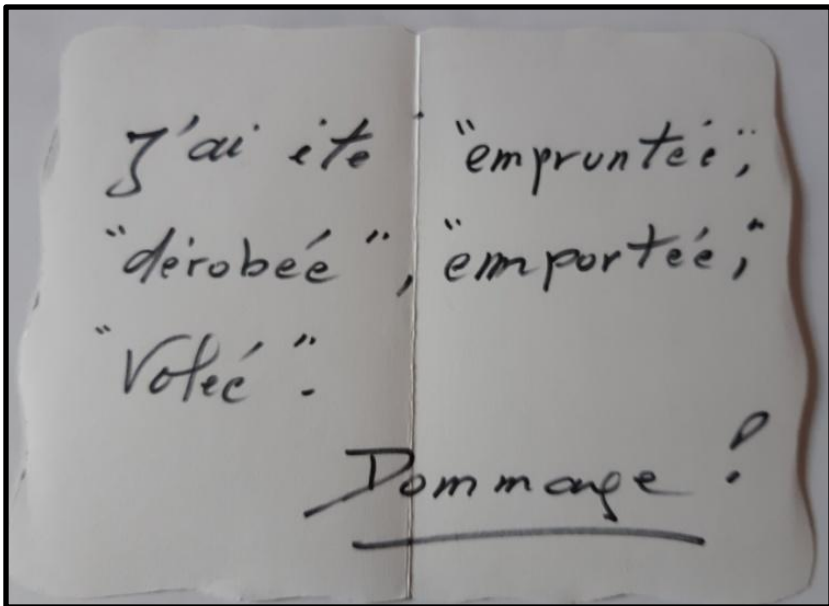 J'ai été "empruntée",
"dérobée", "emportée",
"Volée".
Dommage !